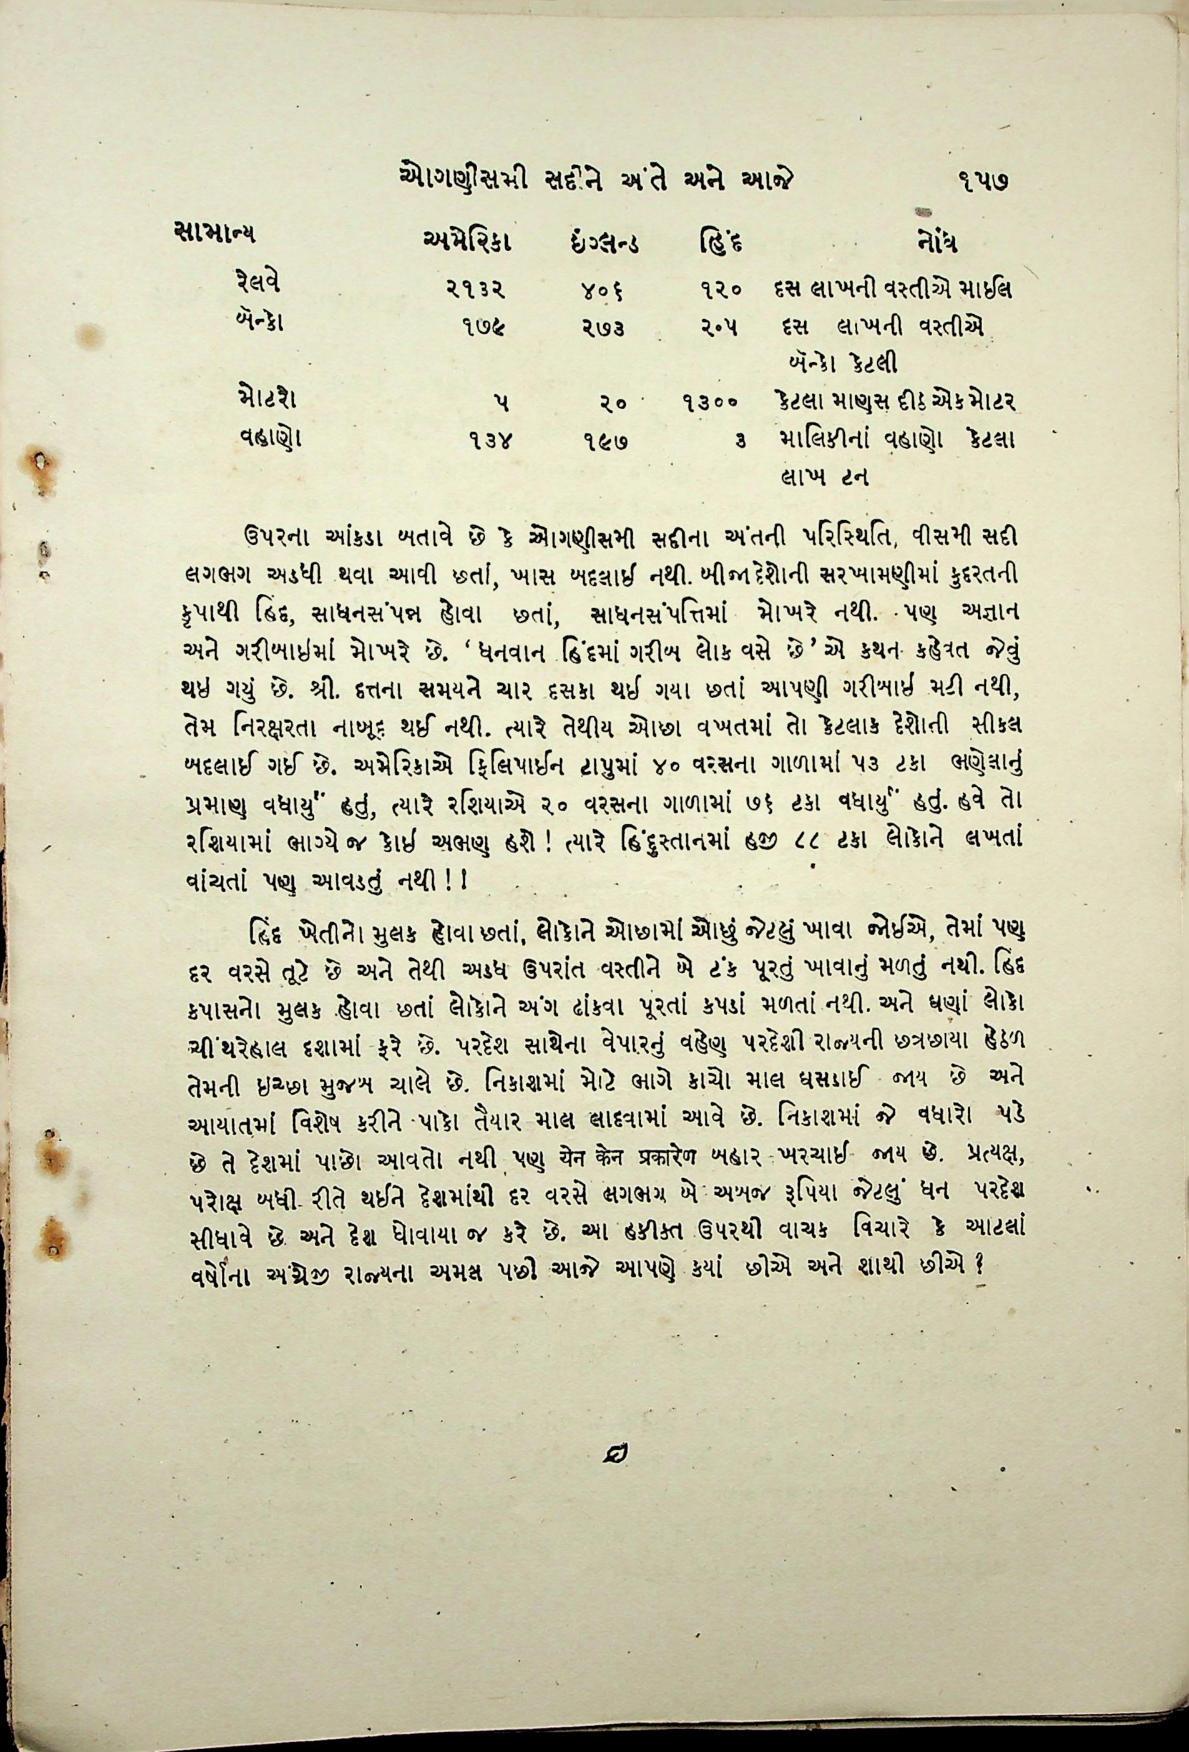 ઓગણીસમી સદીને અંતે અને આજે ૧૫૭
સામાન્ય અમેરિકા ઇંગ્લન્ડ હિંદ નોંધ
રેલવે ૨૧૩૨ ૪૦૬ ૧૨૦ દસ લાખની વસ્તીએ માઈલ
બૅન્કો ૧૭૯ ૨૭૩ ૨૦૫ દસ લાખની વસ્તીએ
બૅન્કો કેટલી
મોટરો ૫ ૨૦ ૧૩૦૦ કેટલા માણસ દીઠ એક મોટર
વહાણો ૧૩૪ ૧૯૭ ૩ માલિકીનાં વહાણો કેટલા
લાખ ટન
ઉપરના આંકડા બતાવે છે કે ઓગણીસમી સદીના અંતની પરિસ્થિતિ, વીસમી સદી
લગભગ અડધી થવા આવી છતાં, ખાસ બદલાઈ નથી. બીજા દેશોની સરખામણીમાં કુદરતની
કૃપાથી હિંદ, સાધનસંપન્ન હોવા છતાં, સાધનસંપત્તિમાં મોખરે નથી. પણ અજ્ઞાન
અને ગરીબાઇમાં મોખરે છે. ‘ધનવાન હિંદમાં ગરીબ લોક વસે છે’ એ કથન કહેવત જેવું
થઇ ગયું છે. શ્રી. દત્તના સમયને ચાર દસકા થઈ ગયા છતાં આપણી ગરીબાઇ મટી નથી,
તેમ નિરક્ષરતા નાબૂદ થઈ નથી. ત્યારે તેથીય ઓછા વખતમાં તો કેટલાક દેશોની સીકલ
બદલાઈ ગઈ છે. અમેરિકાએ ફિલિપાઈન ટાપુમાં ૪૦ વરસના ગાળામાં ૫૩ ટકા ભણેલાનું
પ્રમાણ વધાર્યું હતું, ત્યારે રશિયાએ ૨૦ વરસના ગાળામાં ૭૬ ટકા વધાર્યું હતું. હવે તો
રશિયામાં ભાગ્યે જ કોઇ અભણ હશે! ત્યારે હિંદુસ્તાનમાં હજી ૮૮ ટકા લોકોને લખતાં
વાંચતાં પણ આવડતું નથી!!
હિંદ ખેતીનો મુલક હોવા છતાં, લોકોને ઓછામાં ઓછું જેટલું ખાવા જોઈએ, તેમાં પણ
દર વરસે તૂટે છે અને તેથી અડધ ઉપરાંત વસ્તીને બે ટંક પૂરતું ખાવાનું મળતું નથી. હિંદ
કપાસનો મુલક હોવા છતાં લોકોને અંગ ઢાંકવા પૂરતાં કપડાં મળતાં નથી. અને ઘણાં લોકો
ચીંથરેહાલ દશામાં ફરે છે. પરદેશ સાથેના વેપારનું વહેણ પરદેશી રાજ્યની છત્રછાયા હેઠળ
તેમની ઇચ્છા મુજબ ચાલે છે. નિકાશમાં મોટે ભાગે કાચો માલ ઘસડાઈ જાય છે અને
આયાતમાં વિશેષ કરીને પાકો તૈયાર માલ લાદવામાં આવે છે. નિકાશમાં જે વધારો પડે
છે તે દેશમાં પાછો આવતો નથી પણ येन केन प्रकारेण બહાર ખરચાઇ જાય છે. પ્રત્યક્ષ,
પરોક્ષ બધી રીતે થઈને દેશમાંથી દર વરસે લગભગ બે અબજ રૂપિયા જેટલું ધન પરદેશ
સીધાવે છે અને દેશ ધોવાયા જ કરે છે. આ હકીકત ઉપરથી વાચક વિચારે કે આટલાં
વર્ષોના અંગ્રેજી રાજ્યના અમલ પછી આજે આપણે કયાં છીએ અને શાથી છીએ?